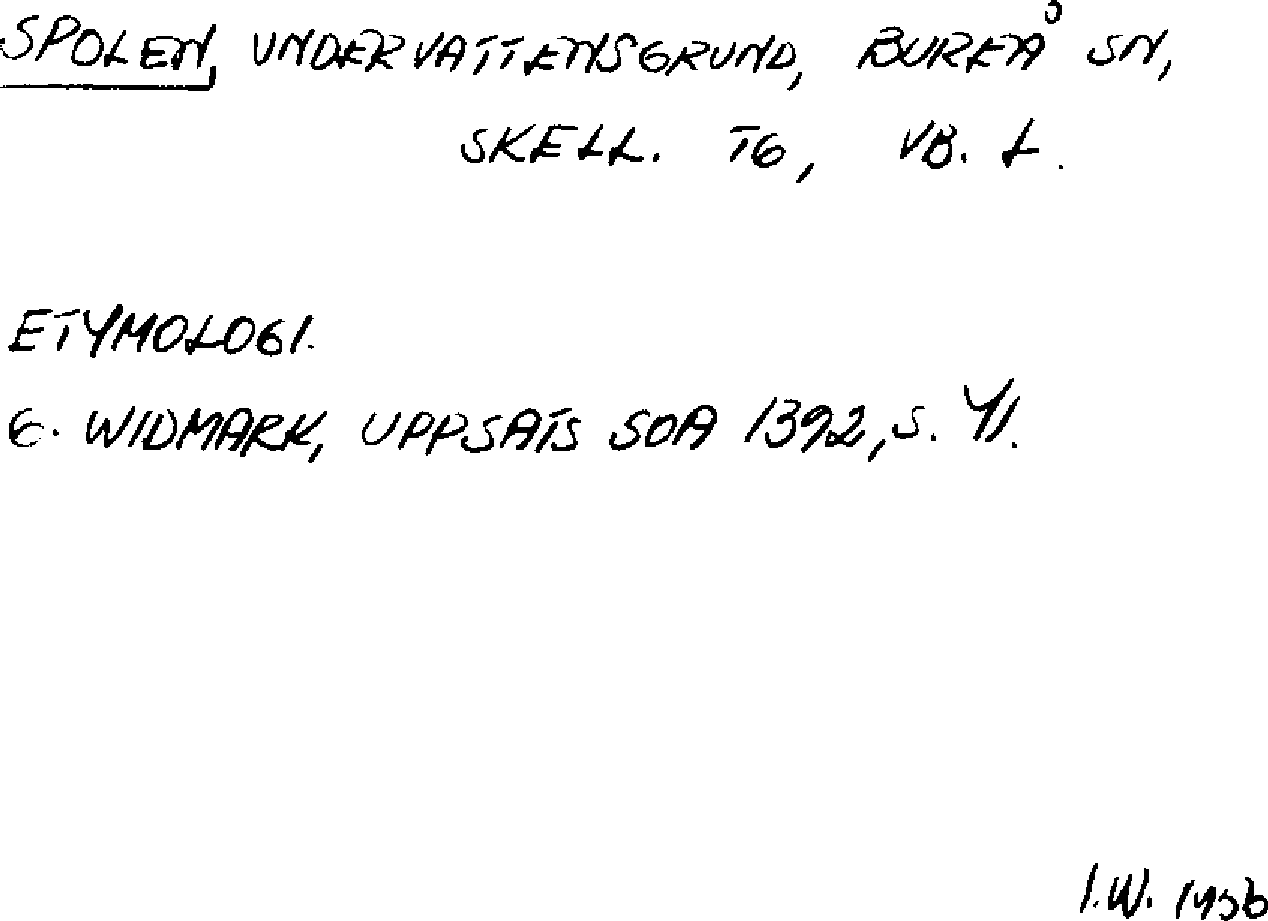 SPOLEN, UNDERVATTENSGRUND, BUREÅ SN,
SKELL. TG, VB. L.
ETYMOLOGI.
G. WIDMARK, UPPSATS SOA 1392, S. 41.
I.W. 1956